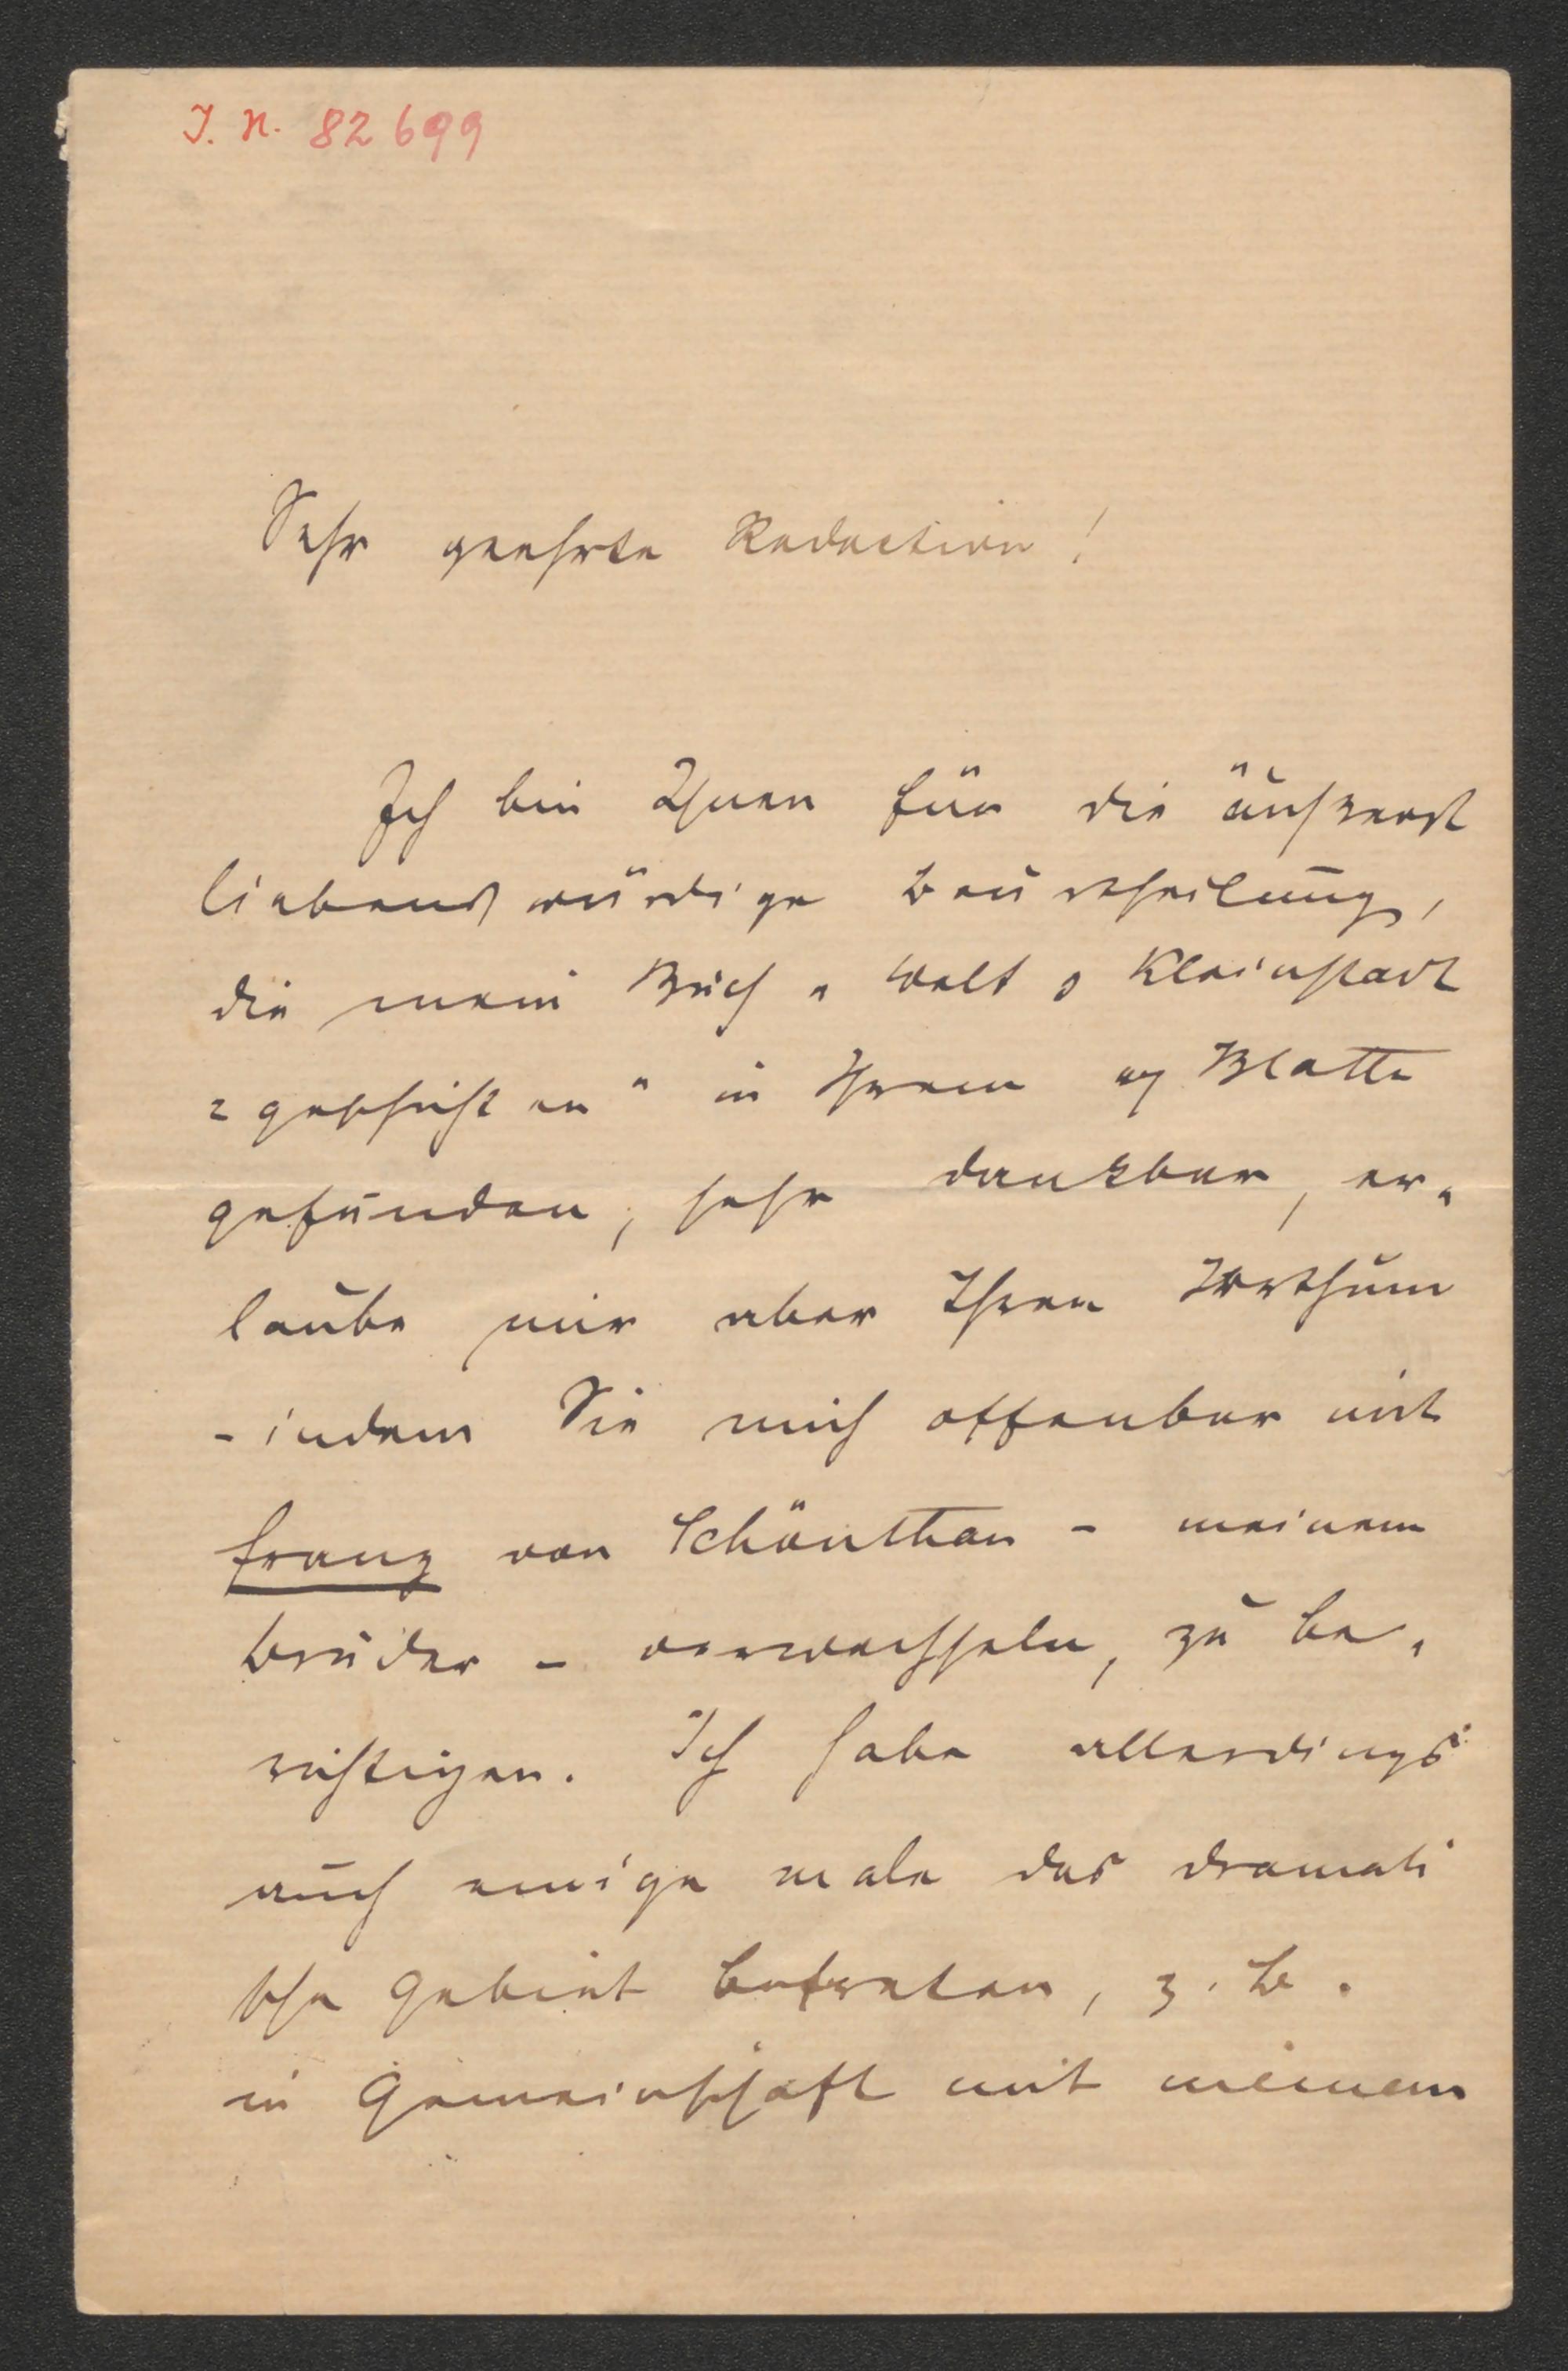 I. N. 82699
Sehr geehrte Redaction!
Ich bin Ihnen für die äußerst
liebenswürdige Beurtheilung,
die mein Buch „Welt- & Kleinstadt
=geschichten" in Ihrem Blatte
gefunden, sehr dankbar, er-
laube mir aber Ihren Irrthum
- indem Sie mich offenbar mit
Franz von Schönthan - meinem
Bruder - verwechseln, zu be-
richtigen. Ich habe allerdings
auch einige male das dramati
sche Gebiet betreten, z. B.
in Gemeinschaft mit meinem